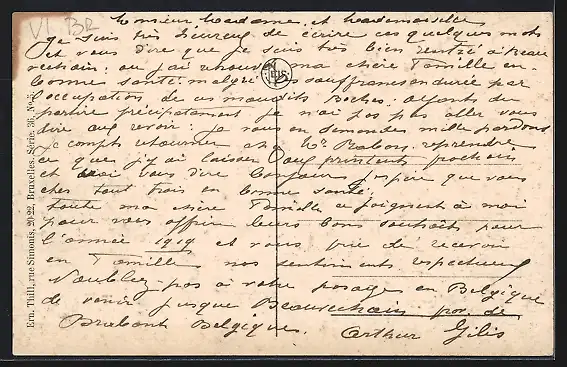 VI BR
Monsieur Madame et Mademoiselle
je suis très heureux de écrire ces quelques mots
et vous dire que je suis très bien rentré à Beau
vechain: ou j'ai retrouvé ma chère Famille en
bonne santé: malgré les souffrances endurée par
l'occupation de ces maudits Boches. Ayants du
partir précipitament je n'ai pas pas aller vous
dire aux revoir: je vous en demandes mille pardons
je compts retourner chez Mr reprendre
ce que j'y ai laisser aux printents prochain
et vous dire bonjour j'espère que vous
etes tout trois en bonne santé;
toute ma chère Famille ce joignent à moi
pour vous offrir leurs bons souhaits pour
l'année 1919 et vous prie de recevoir
en Famille nos sentiments respectueux
N'oubliez-pas à votre passage en Belgique
de venir jusque Beauvechain por. de
Brabant Belgiques. Arthur Gilis
Ern. Thill, rue Simonis, 20-22, Bruxelles. Série. 36, No.